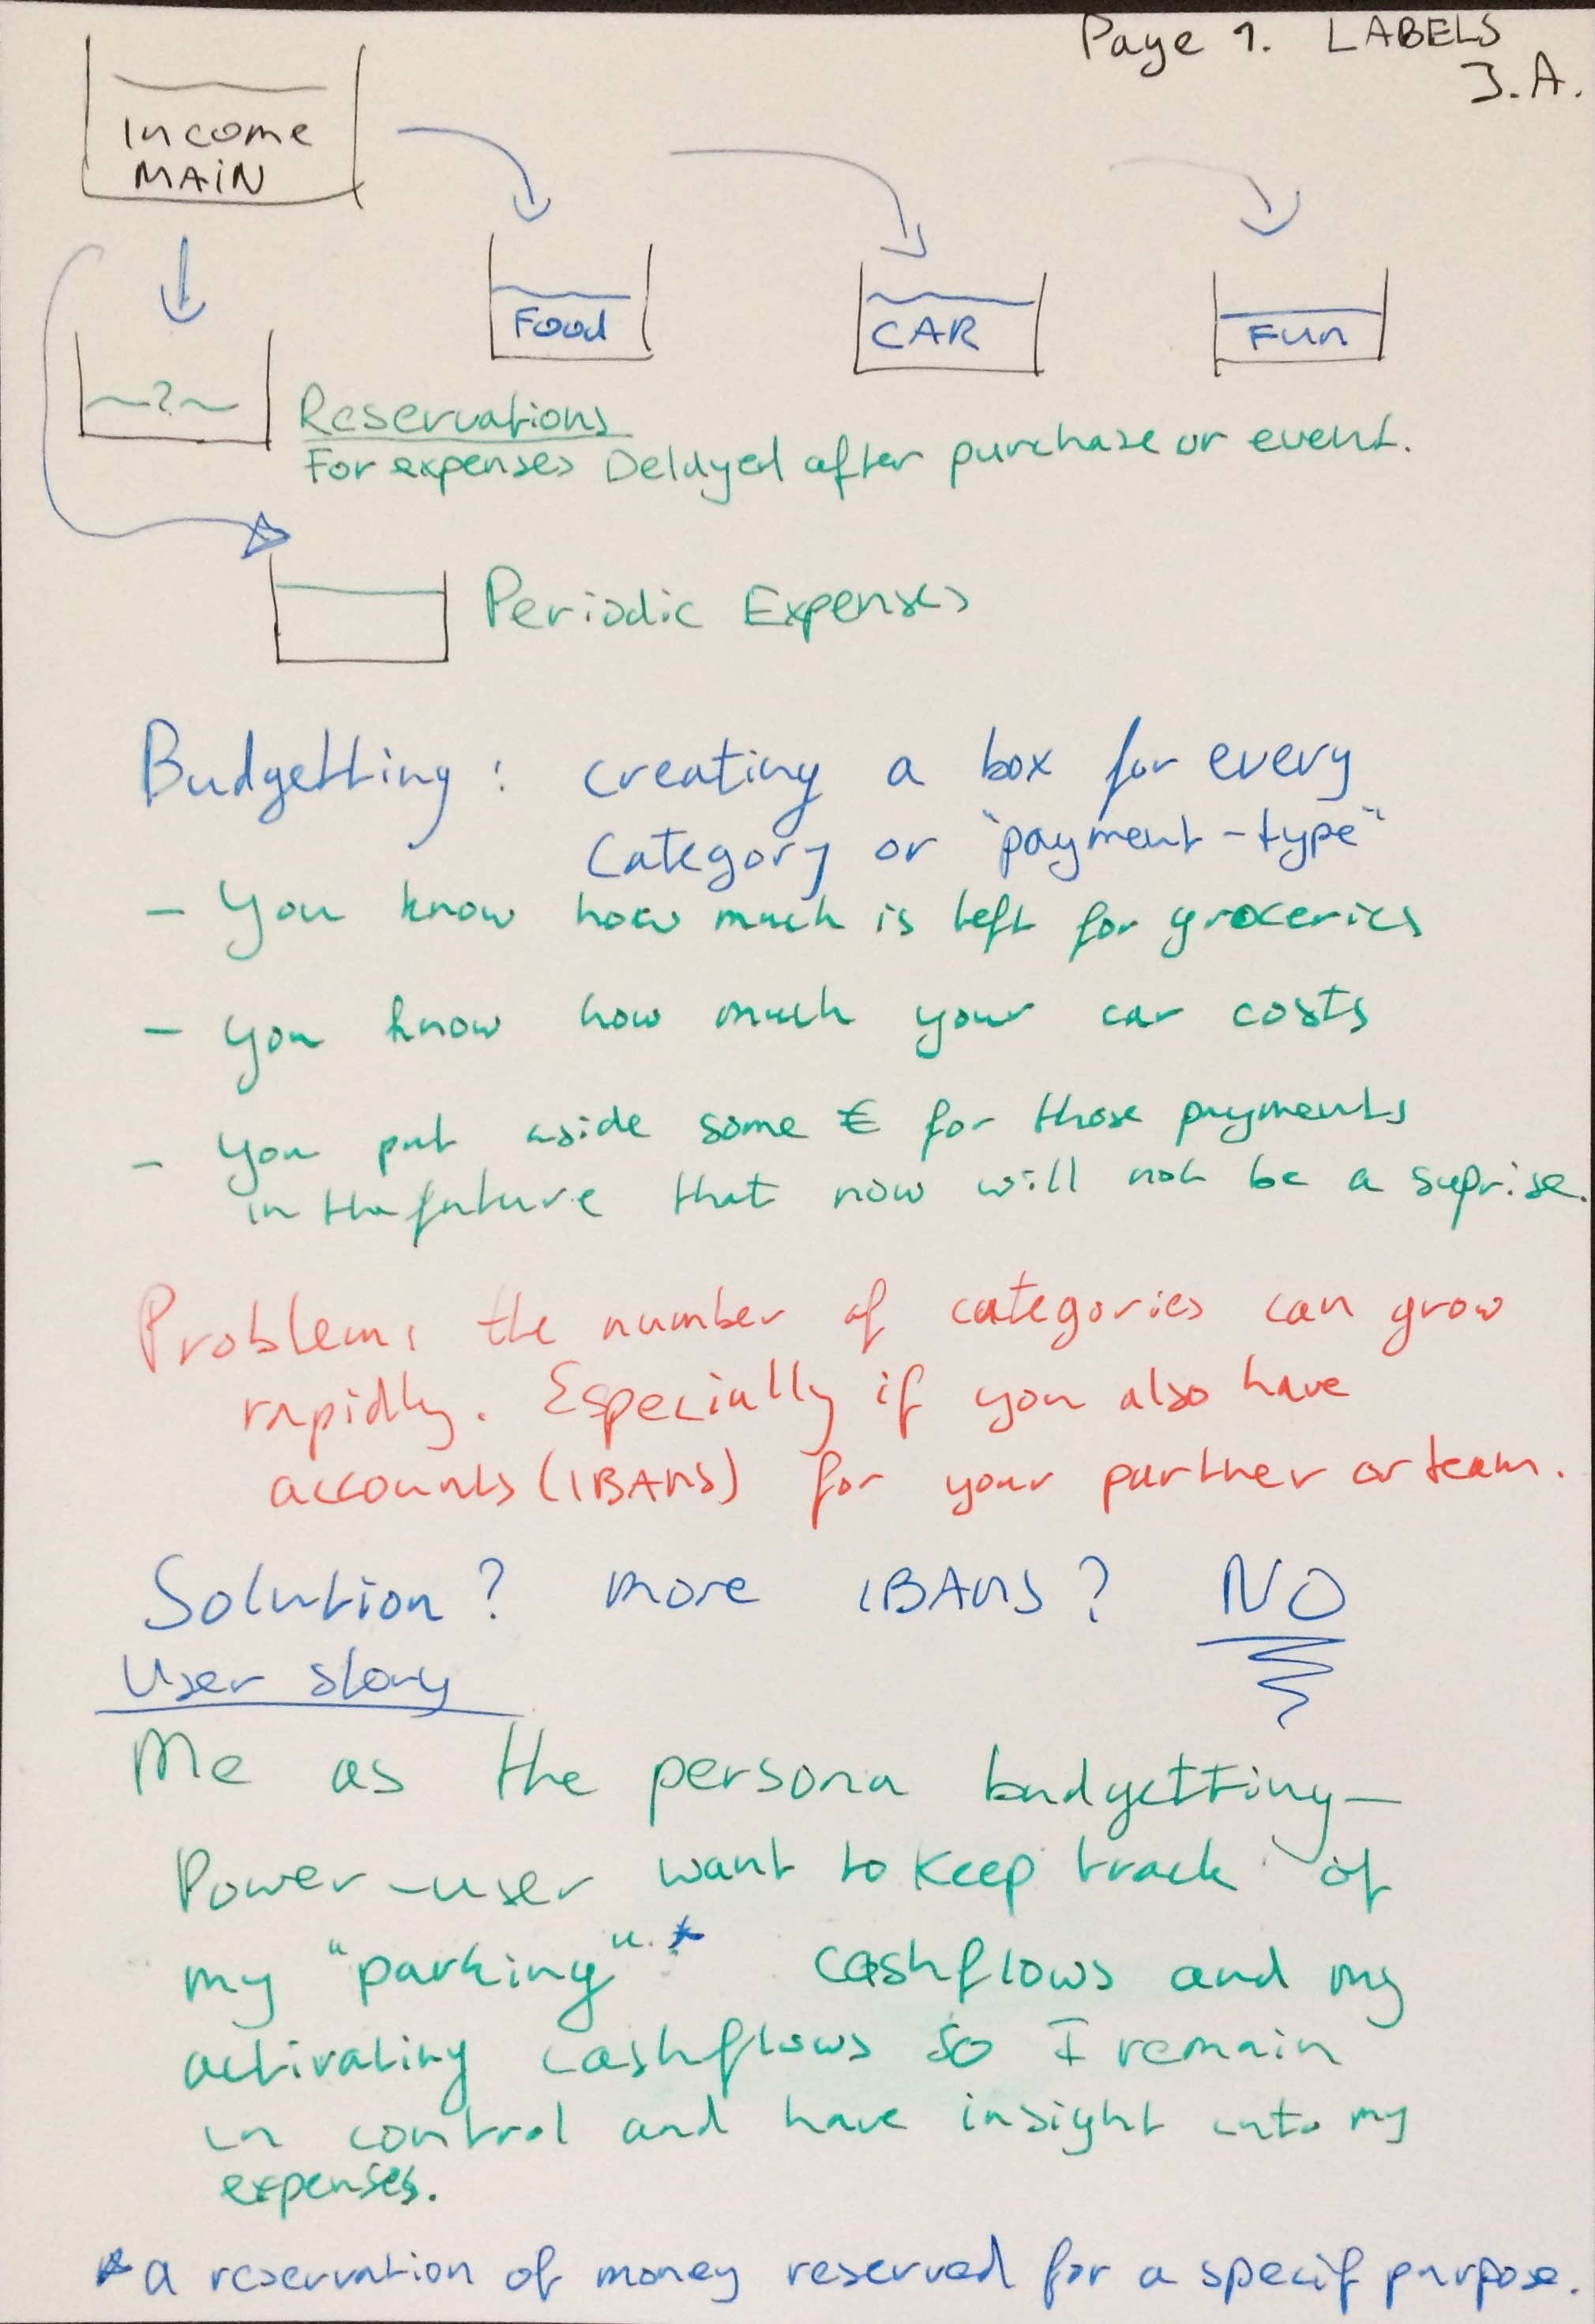 Page 1. LABELS
J.A.
Income
MAIN
Food
CAR
Fun
~?~
Reservations
For expenses Delayed after purchase or event.
Periodic Expenses
Budgetting: creating a box for every
category or "payment-type"
- You know how much is left for groceries
- you know how much your car costs
- you put aside some € for those payments
in the future that now will not be a suprise.
Problem: the number of categories can grow
rapidly. Especially if you also have
accounts (IBANS) for your partner or team.
Solution? more IBANS? NO
User story
Me as the persona budgetting-
Power-user want to keep track of
my "parking"* cashflows and my
activating cashflows so I remain
in control and have insight into my
expenses.
* a reservation of money reserved for a specif purpose.